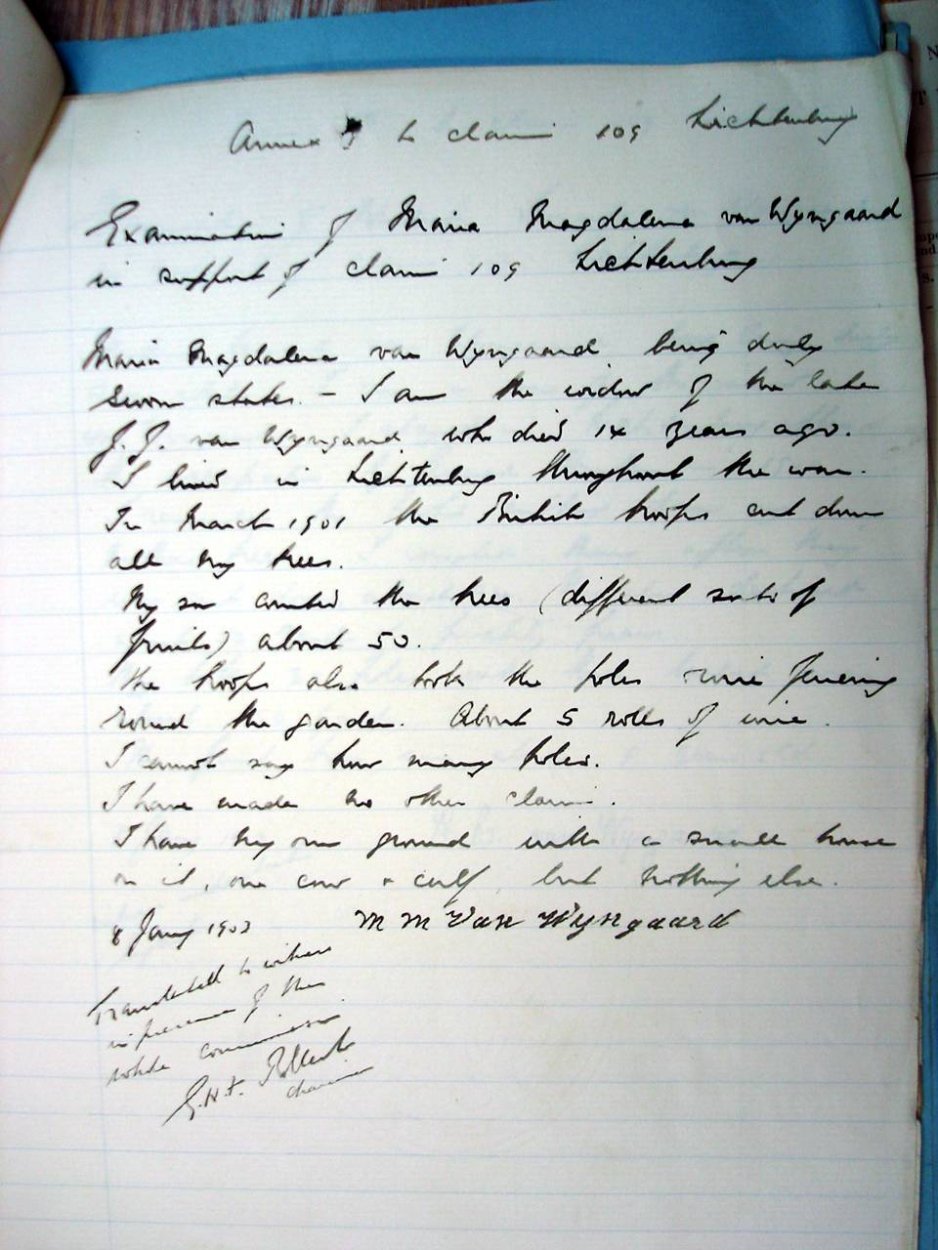 Annex to claim 109 Lichtenburg
Examination of Maria Magdalena van Wyngaard
in support of claim 109 Lichtenburg
Maria Magdalena van Wyngaard being duly
sworn states. - I am the widow of the late
J.J. van Wyngaard who died 14 years ago.
I lived in Lichtenburg throughout the war.
In March 1901 the British troops cut down
all my trees.
My son counted the trees (different sorts of
fruits) about 50.
The troops also took the poles & wire fencing
round the garden. About 5 rolls of wire.
I cannot say how many poles.
I have made no other claim.
I have my own ground with a small house
on it, one cow & calf, but nothing else.
8 Jany 1903 M M Van Wyngaard
Translated to witness
in presence of the
whole commission
G.H.F.
chairman